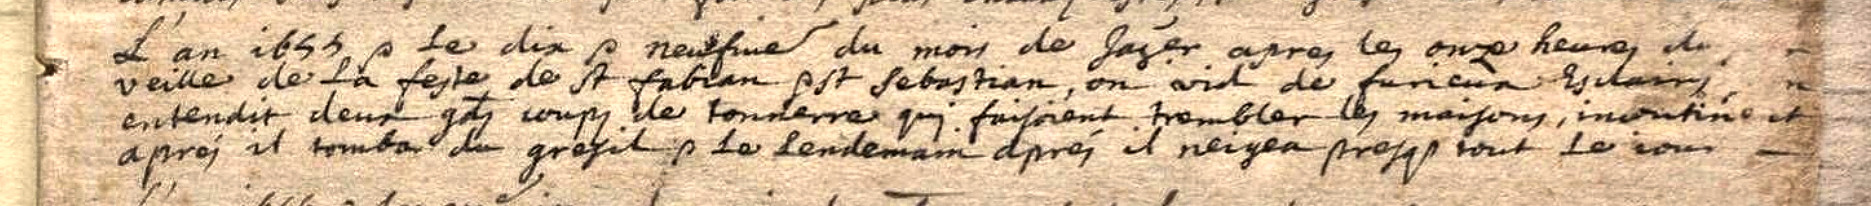 L'an 1655 & le dix & neufme du mois de Ja̅er apres les onze heures du
veille de la feste de St fabian & St Sebastian, on vid de furieux Esclairs,
entendit deux gds coups de tonnerre qui faisoient trembler les maisons, incontinēt
aprés il tomba du gresil & le Lendemain aprés il neigea presq& tout le iour